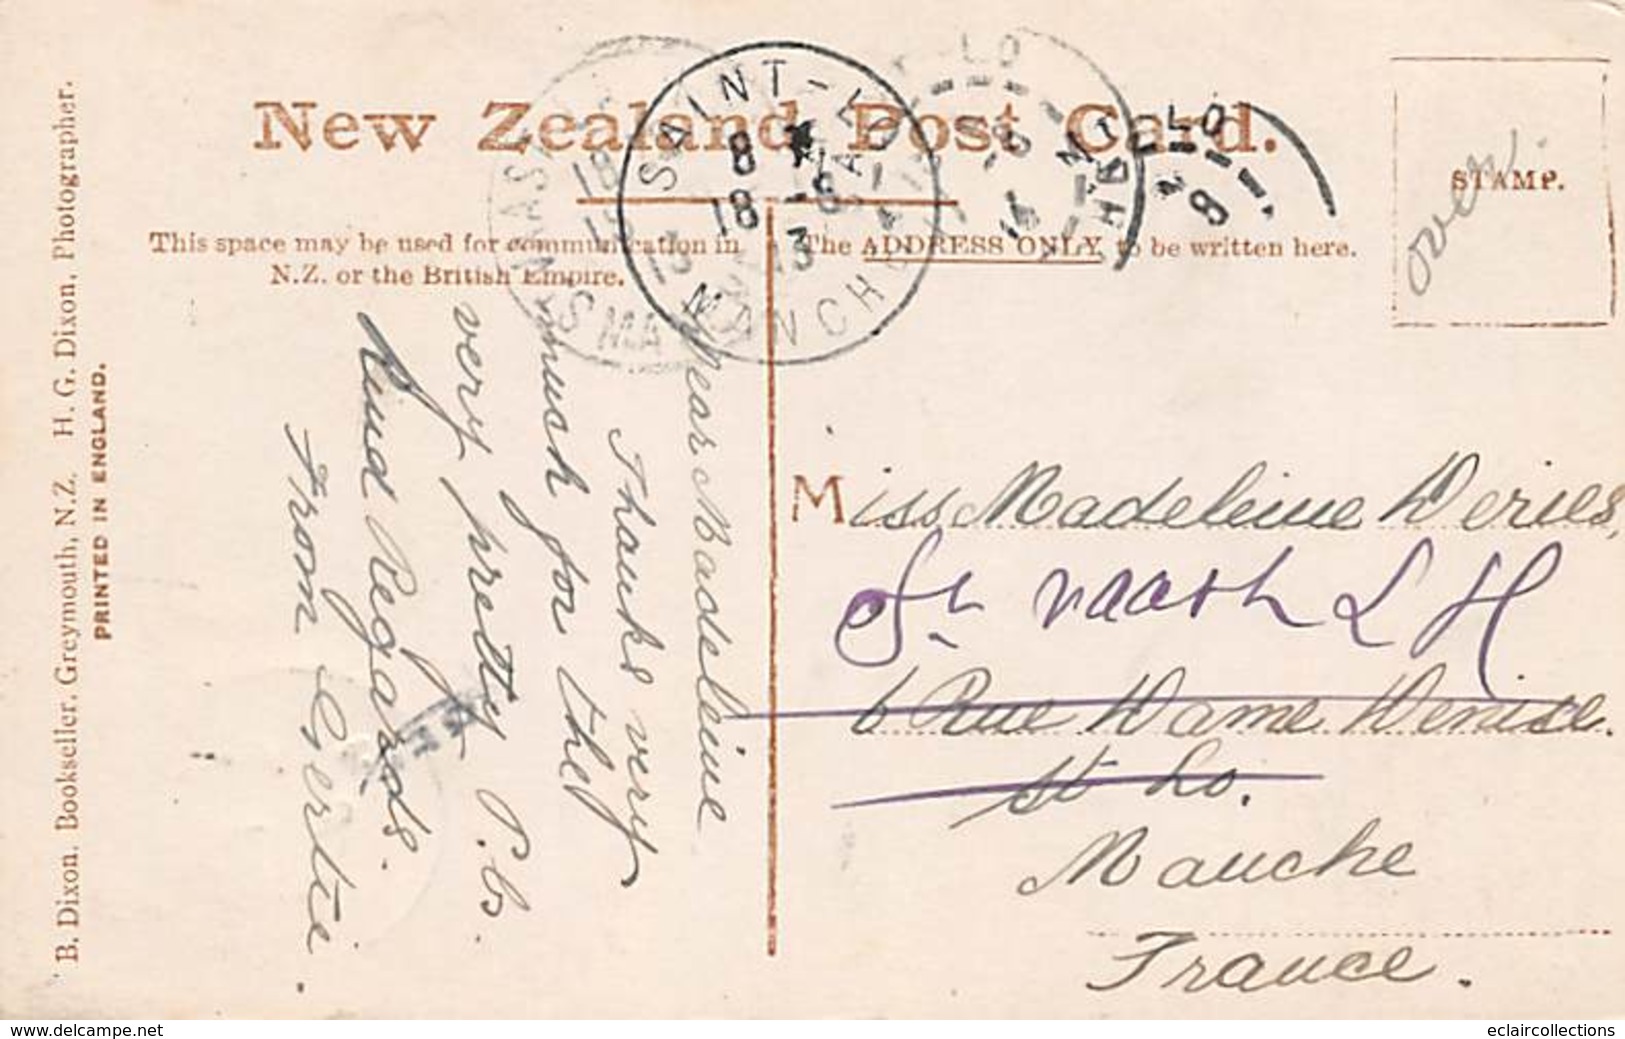 New Zealand Post Card.
This space may be used for communication in
N.Z. or the British Empire.
The ADDRESS ONLY to be written here.
STAMP.
over.
B. Dixon, Bookseller, Greymouth, N.Z. H. G. Dixon, Photographer.
PRINTED IN ENGLAND.
SAINT-LO
MANCHE
8
18 -8
13
LO
Dear Madeleine
Thanks very
much for the
very pretty P.Cs.
Kind Regards.
From Gertie.
Miss Madeleine Deries,
St Vaast L H
6 Rue Dame Denise.
St Lo.
Manche
France.
www.delcampe.net
eclaircollections